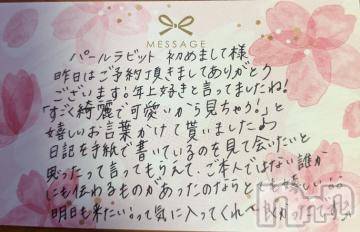 MESSAGE
パールラビット 初めまして様
昨日はご予約頂きましてありがとう
ございます!年上好きと言ってましたね!
「すごく綺麗で可愛いから見ちゃう!」と
嬉しいお言葉かけて貰いました♪
日記を手紙で書いているのを見て会いたいと
思ったって言ってもらえて、ご本人ではない誰か
にも伝わるものがあったのならとても嬉しい…
明日も来たい!って気に入ってくれて